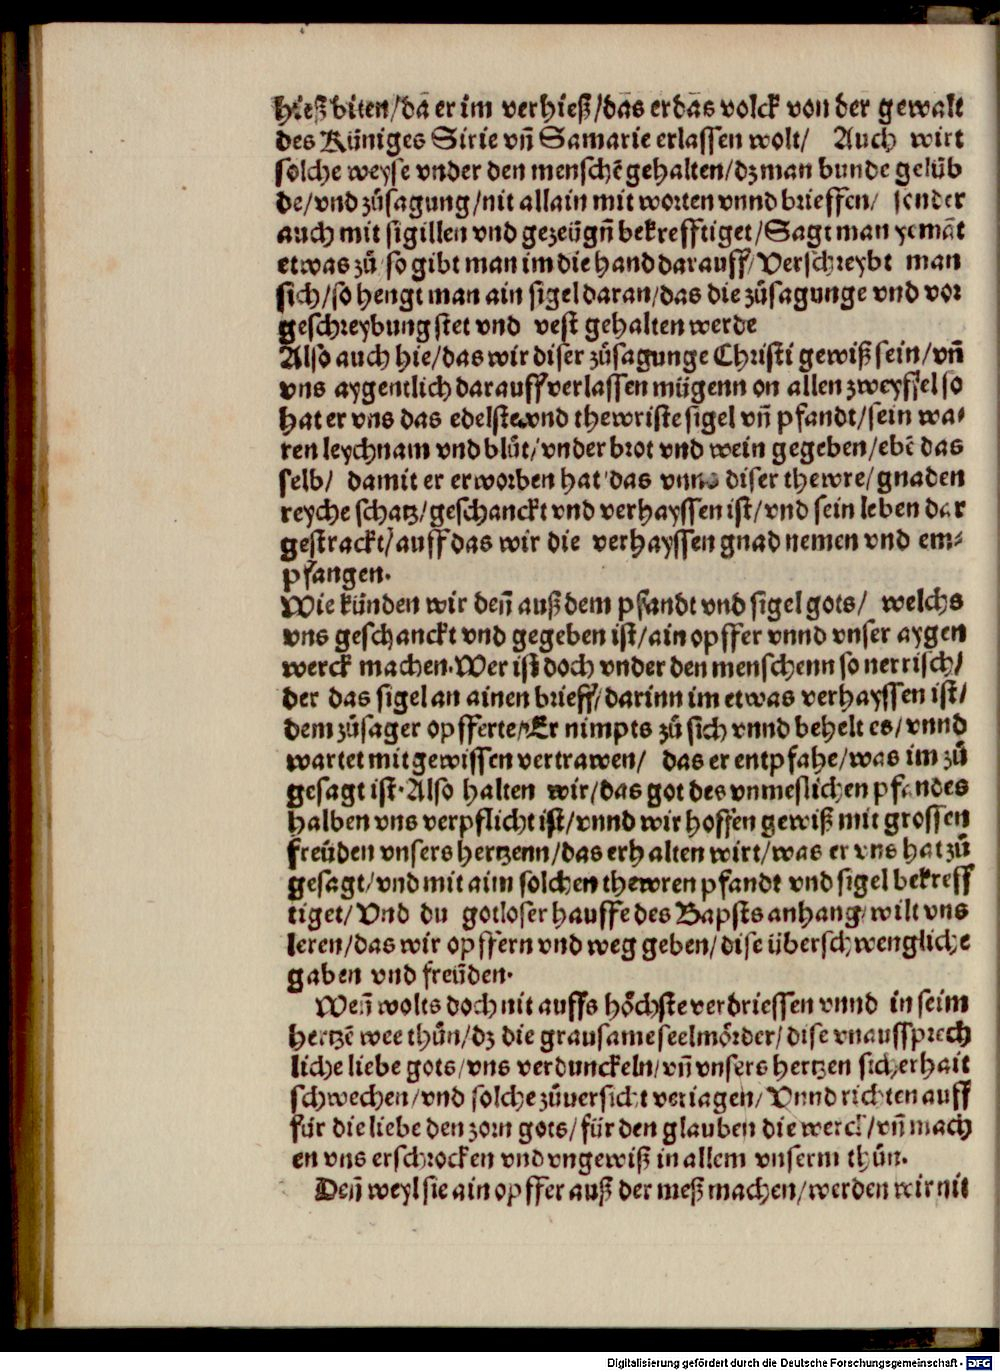 hieß biten/da er im verhieß/das er das volck von der gewalt
des Küniges Sirie vñ Samarie erlassen wolt/ Auch wirt
solche weyse vnder den menschē gehalten/dz man bunde gelüb
de/vnd zůsagung/nit allain mit worten vnnd brieffen/ sonder
auch mit sigillen vnd gezeügñ bekrefftiget/Sagt man yemāt
etwas zů/so gibt man im die hand darauff/Verschreybt man
sich/so hengt man ain sigel daran/das die zůsagunge vnd vor
geschreybung stet vnd vest gehalten werde
Also auch hie/das wir diser zůsagunge Christi gewiß sein/vñ
vns aygentlich darauff verlassen mügenn on allen zweyffel so
hat er vns das edelste vnd thewriste sigel vñ pfandt/sein wa-
ren leychnam vnd blůt/vnder brot vnd wein gegeben/ebē das
selb/ damit er erworben hat das vnns diser thewre/gnaden
reyche schatz/geschanckt vnd verhayssen ist/vnd sein leben dar
gestrackt/auff das wir die verhayssen gnad nemen vnd em-
pfangen.
Wie künden wir deñ auß dem pfandt vnd sigel gots/ welchs
vns geschanckt vnd gegeben ist/ain opffer vnnd vnser aygen
werck machen.Wer ist doch vnder den menschenn so nerrisch/
der das sigel an ainen brieff/darinn im etwas verhayssen ist/
dem zůsager opfferte/Er nimpts zů sich vnnd behelt es/vnnd
wartet mit gewissen vertrawen/ das er entpfahe/was im zů
gesagt ist.Also halten wir/das got des vnmeslichen pfandes
halben vns verpflicht ist/vnnd wir hoffen gewiß mit grossen
freüden vnsers hertzenn/das er halten wirt/was er vns hat zů
gesagt/vnd mit aim solchen thewren pfandt vnd sigel bekreff
tiget/Vnd du gotloser hauffe des Bapsts anhang/wilt vns
leren/das wir opffern vnd weg geben/dise überschwengliche
gaben vnd freüden.
Weñ wolts doch nit auffs höchste verdriessen vnnd in seim
hertzē wee thůn/dz die grausame seelmörder/dise vnaussprech
liche liebe gots/vns verdunckeln/vñ vnsers hertzen sicherhait
schwechen/vnd solche zůuersicht veriagen/Vnnd richten auff
für die liebe den zorn gots/für den glauben die werck/vñ mach
en vns erschrocken vnd vngewiß in allem vnserm thůn.
Deñ weyl sie ain opffer auß der meß machen/werden wir nit
Digitalisierung gefördert durch die Deutsche Forschungsgemeinschaft - DFG